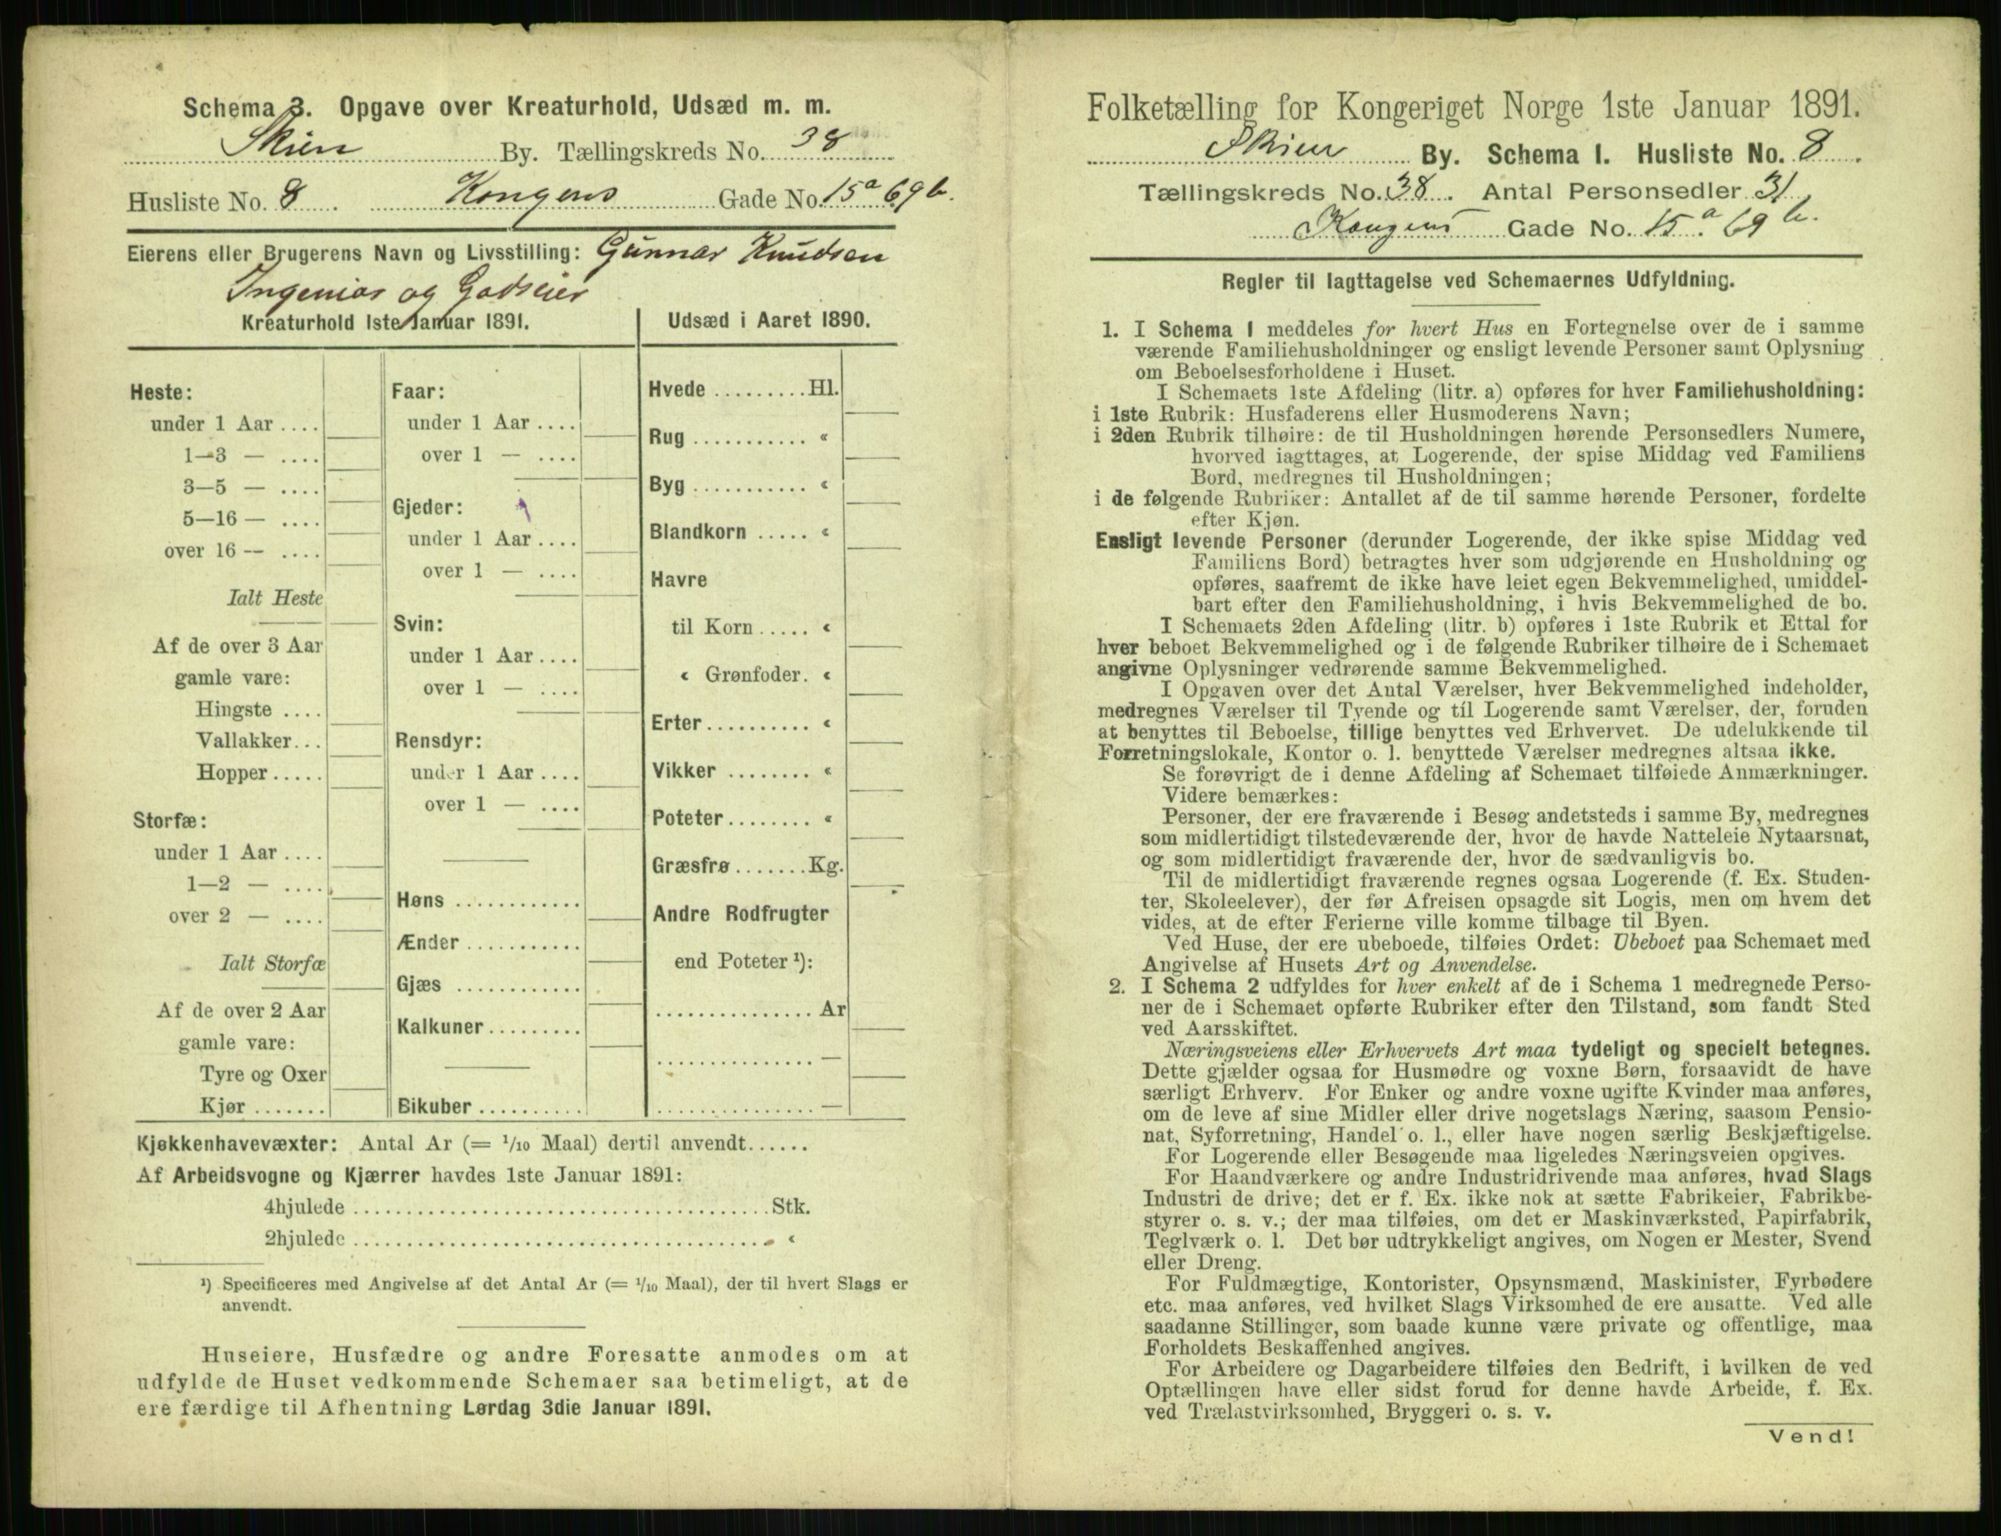 Schema 3. Opgave over Kreaturhold, Udsæd m. m.
Skien By. Tællingskreds No. 38
Husliste No. 8 Kongens Gade No. 15a 69b.
Eierens eller Brugerens Navn og Livsstilling: Gunnar Knudsen
Ingeniør og Godseier
Kreaturhold 1ste Januar 1891.
Heste:
under 1 Aar ....
1—3 — ....
3—5 — ....
5—16 — ....
over 16 — ....
Ialt Heste
Af de over 3 Aar
gamle vare:
Hingste ....
Vallakker...
Hopper.....
Storfæ:
under 1 Aar ....
1—2 — ....
over 2 — ....
Ialt Storfæ
Af de over 2 Aar
gamle vare:
Tyre og Oxer
Kjør .......
Faar:
under 1 Aar ....
over 1 — ....
Gjeder:
under 1 Aar ....
over 1 — ....
Svin:
under 1 Aar ....
over 1 — ....
Rensdyr:
under 1 Aar ....
over 1 — ....
Høns ............
Ænder ...........
Gjæs ............
Kalkuner.........
Bikuber ..........
Udsæd i Aaret 1890.
Hvede .........Hl.
Rug ........... «
Byg ........... «
Blandkorn ..... «
Havre
til Korn ..... «
« Grønfoder. «
Erter .......... «
Vikker ........ «
Poteter........ «
Græsfrø .......Kg.
Andre Rodfrugter
end Poteter ¹):
............... Ar
............... —
............... —
Kjøkkenhavevæxter: Antal Ar (= 1/10 Maal) dertil anvendt......
Af Arbeidsvogne og Kjærrer havdes 1ste Januar 1891:
4hjulede .......................................Stk.
2hjulede ....................................... «
¹) Specificeres med Angivelse af det Antal Ar (= 1/10 Maal), der til hvert Slags er
anvendt.
Huseiere, Husfædre og andre Foresatte anmodes om at
udfylde de Huset vedkommende Schemaer saa betimeligt, at de
ere færdige til Afhentning Lørdag 3die Januar 1891.
Folketælling for Kongeriget Norge 1ste Januar 1891.
Skien By. Schema I. Husliste No. 8.
Tællingskreds No. 38. Antal Personsedler 31
Kongens Gade No. 15a. 69b.
Regler til Iagttagelse ved Schemaernes Udfyldning.
1. I Schema 1 meddeles for hvert Hus en Fortegnelse over de i samme
værende Familiehusholdninger og ensligt levende Personer samt Oplysning
om Beboelsesforholdene i Huset.
I Schemaets 1ste Afdeling (litr. a) opføres for hver Familiehusholdning:
i 1ste Rubrik: Husfaderens eller Husmoderens Navn;
i 2den Rubrik tilhøire: de til Husholdningen hørende Personsedlers Numere,
hvorved iagttages, at Logerende, der spise Middag ved Familiens
Bord, medregnes til Husholdningen;
i de følgende Rubriker: Antallet af de til samme hørende Personer, fordelte
efter Kjøn.
Ensligt levende Personer (derunder Logerende, der ikke spise Middag ved
Familiens Bord) betragtes hver som udgjørende en Husholdning og
opføres, saafremt de ikke have leiet egen Bekvemmelighed, umiddel-
bart efter den Familiehusholdning, i hvis Bekvemmelighed de bo.
I Schemaets 2den Afdeling (litr. b) opføres i 1ste Rubrik et Ettal for
hver beboet Bekvemmelighed og i de følgende Rubriker tilhøire de i Schemaet
angivne Oplysninger vedrørende samme Bekvemmelighed.
I Opgaven over det Antal Værelser, hver Bekvemmelighed indeholder,
medregnes Værelser til Tyende og til Logerende samt Værelser, der, foruden
at benyttes til Beboelse, tillige benyttes ved Erhvervet. De udelukkende til
Forretningslokale, Kontor o. l. benyttede Værelser medregnes altsaa ikke.
Se forøvrigt de i denne Afdeling af Schemaet tilføiede Anmærkninger.
Videre bemærkes:
Personer, der ere fraværende i Besøg andetsteds i samme By, medregnes
som midlertidigt tilstedeværende der, hvor de havde Natteleie Nytaarsnat,
og som midlertidigt fraværende der, hvor de sædvanligvis bo.
Til de midlertidigt fraværende regnes ogsaa Logerende (f. Ex. Studen-
ter, Skoleelever), der før Afreisen opsagde sit Logis, men om hvem det
vides, at de efter Ferierne ville komme tilbage til Byen.
Ved Huse, der ere ubeboede, tilføies Ordet: Ubeboet paa Schemaet med
Angivelse af Husets Art og Anvendelse.
2. I Schema 2 udfyldes for hver enkelt af de i Schema 1 medregnede Perso-
ner de i Schemaet opførte Rubriker efter den Tilstand, som fandt Sted
ved Aarsskiftet.
Næringsveiens eller Erhvervets Art maa tydeligt og specielt betegnes.
Dette gjælder ogsaa for Husmødre og voxne Børn, forsaavidt de have
særligt Erhverv. For Enker og andre voxne ugifte Kvinder maa anføres,
om de leve af sine Midler eller drive nogetslags Næring, saasom Pensio-
nat, Syforretning, Handel o. l., eller have nogen særlig Beskjæftigelse.
For Logerende eller Besøgende maa ligeledes Næringsveien opgives.
For Haandværkere og andre Industridrivende maa anføres, hvad Slags
Industri de drive; det er f. Ex. ikke nok at sætte Fabrikeier, Fabrikbe-
styrer o. s. v.; der maa tilføies, om det er Maskinværksted, Papirfabrik,
Teglværk o. l. Det bør udtrykkeligt angives, om Nogen er Mester, Svend
eller Dreng.
For Fuldmægtige, Kontorister, Opsynsmænd, Maskinister, Fyrbødere
etc. maa anføres, ved hvilket Slags Virksomhed de ere ansatte. Ved alle
saadanne Stillinger, som baade kunne være private og offentlige, maa
Forholdets Beskaffenhed angives.
For Arbeidere og Dagarbeidere tilføies den Bedrift, i hvilken de ved
Optællingen have eller sidst forud for denne havde Arbeide, f. Ex.
ved Trælastvirksomhed, Bryggeri o. s. v.
Vend!